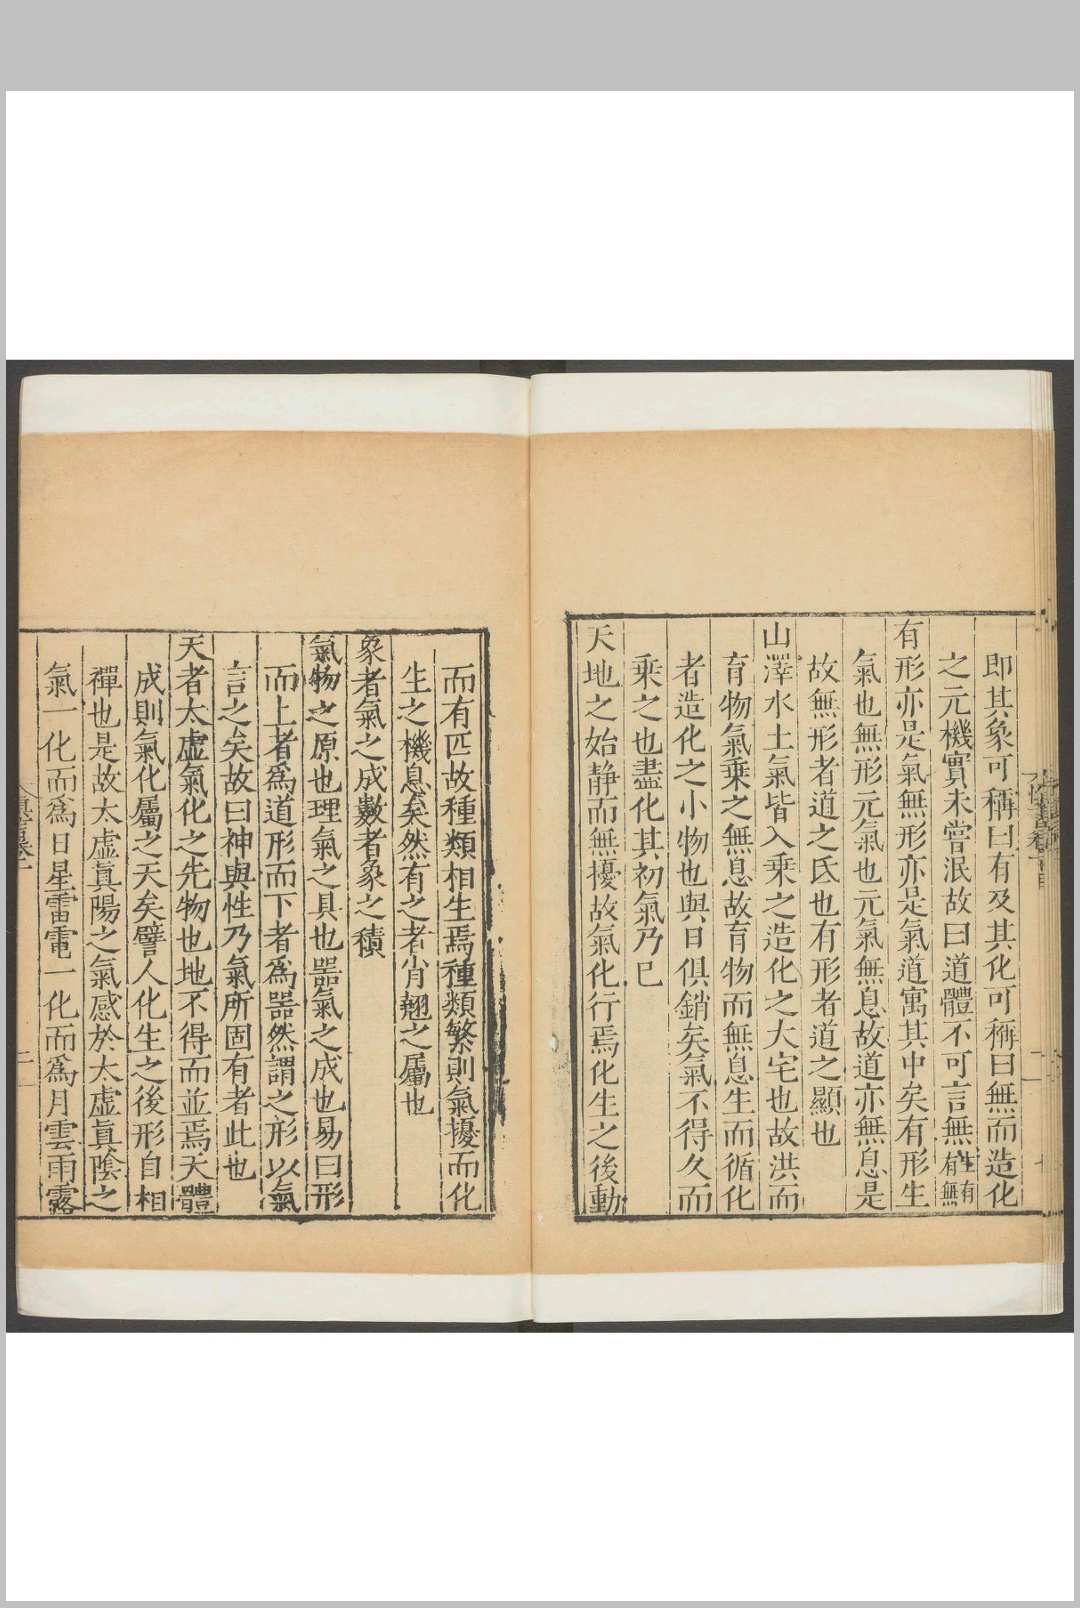 即其象可稱曰有及其化可稱曰無而造化
之元機實未嘗泯故曰道體不可言無生有有無
有形亦是氣無形亦是氣道寓其中矣有形生
氣也無形元氣也元氣無息故道亦無息是
故無形者道之氐也有形者道之顯也
山澤水土氣皆入乘之造化之大宅也故洪而
育物氣乗之無息故育物而無息生而循化
者造化之小物也與日俱銷矣氣不得久而
乘之也盡化其初氣乃已
天地之始靜而無擾故氣化行焉化生之後動
而有匹故種類相生焉種類繁則氣擾而化
生之機息矣然有之者肖翹之屬也
象者氣之成數者象之積
氣物之原也理氣之具也噐氣之成也易曰形
而上者爲道形而下者爲噐然謂之形以氣
言之矣故曰神與性乃氣所固有者此也
天者太虛氣化之先物也地不得而並焉天體
成則氣化屬之天矣譬人化生之後形自相
禪也是故太虛眞陽之氣感於太虛眞陰之
氣一化而爲日星雷電一化而爲月雲雨露